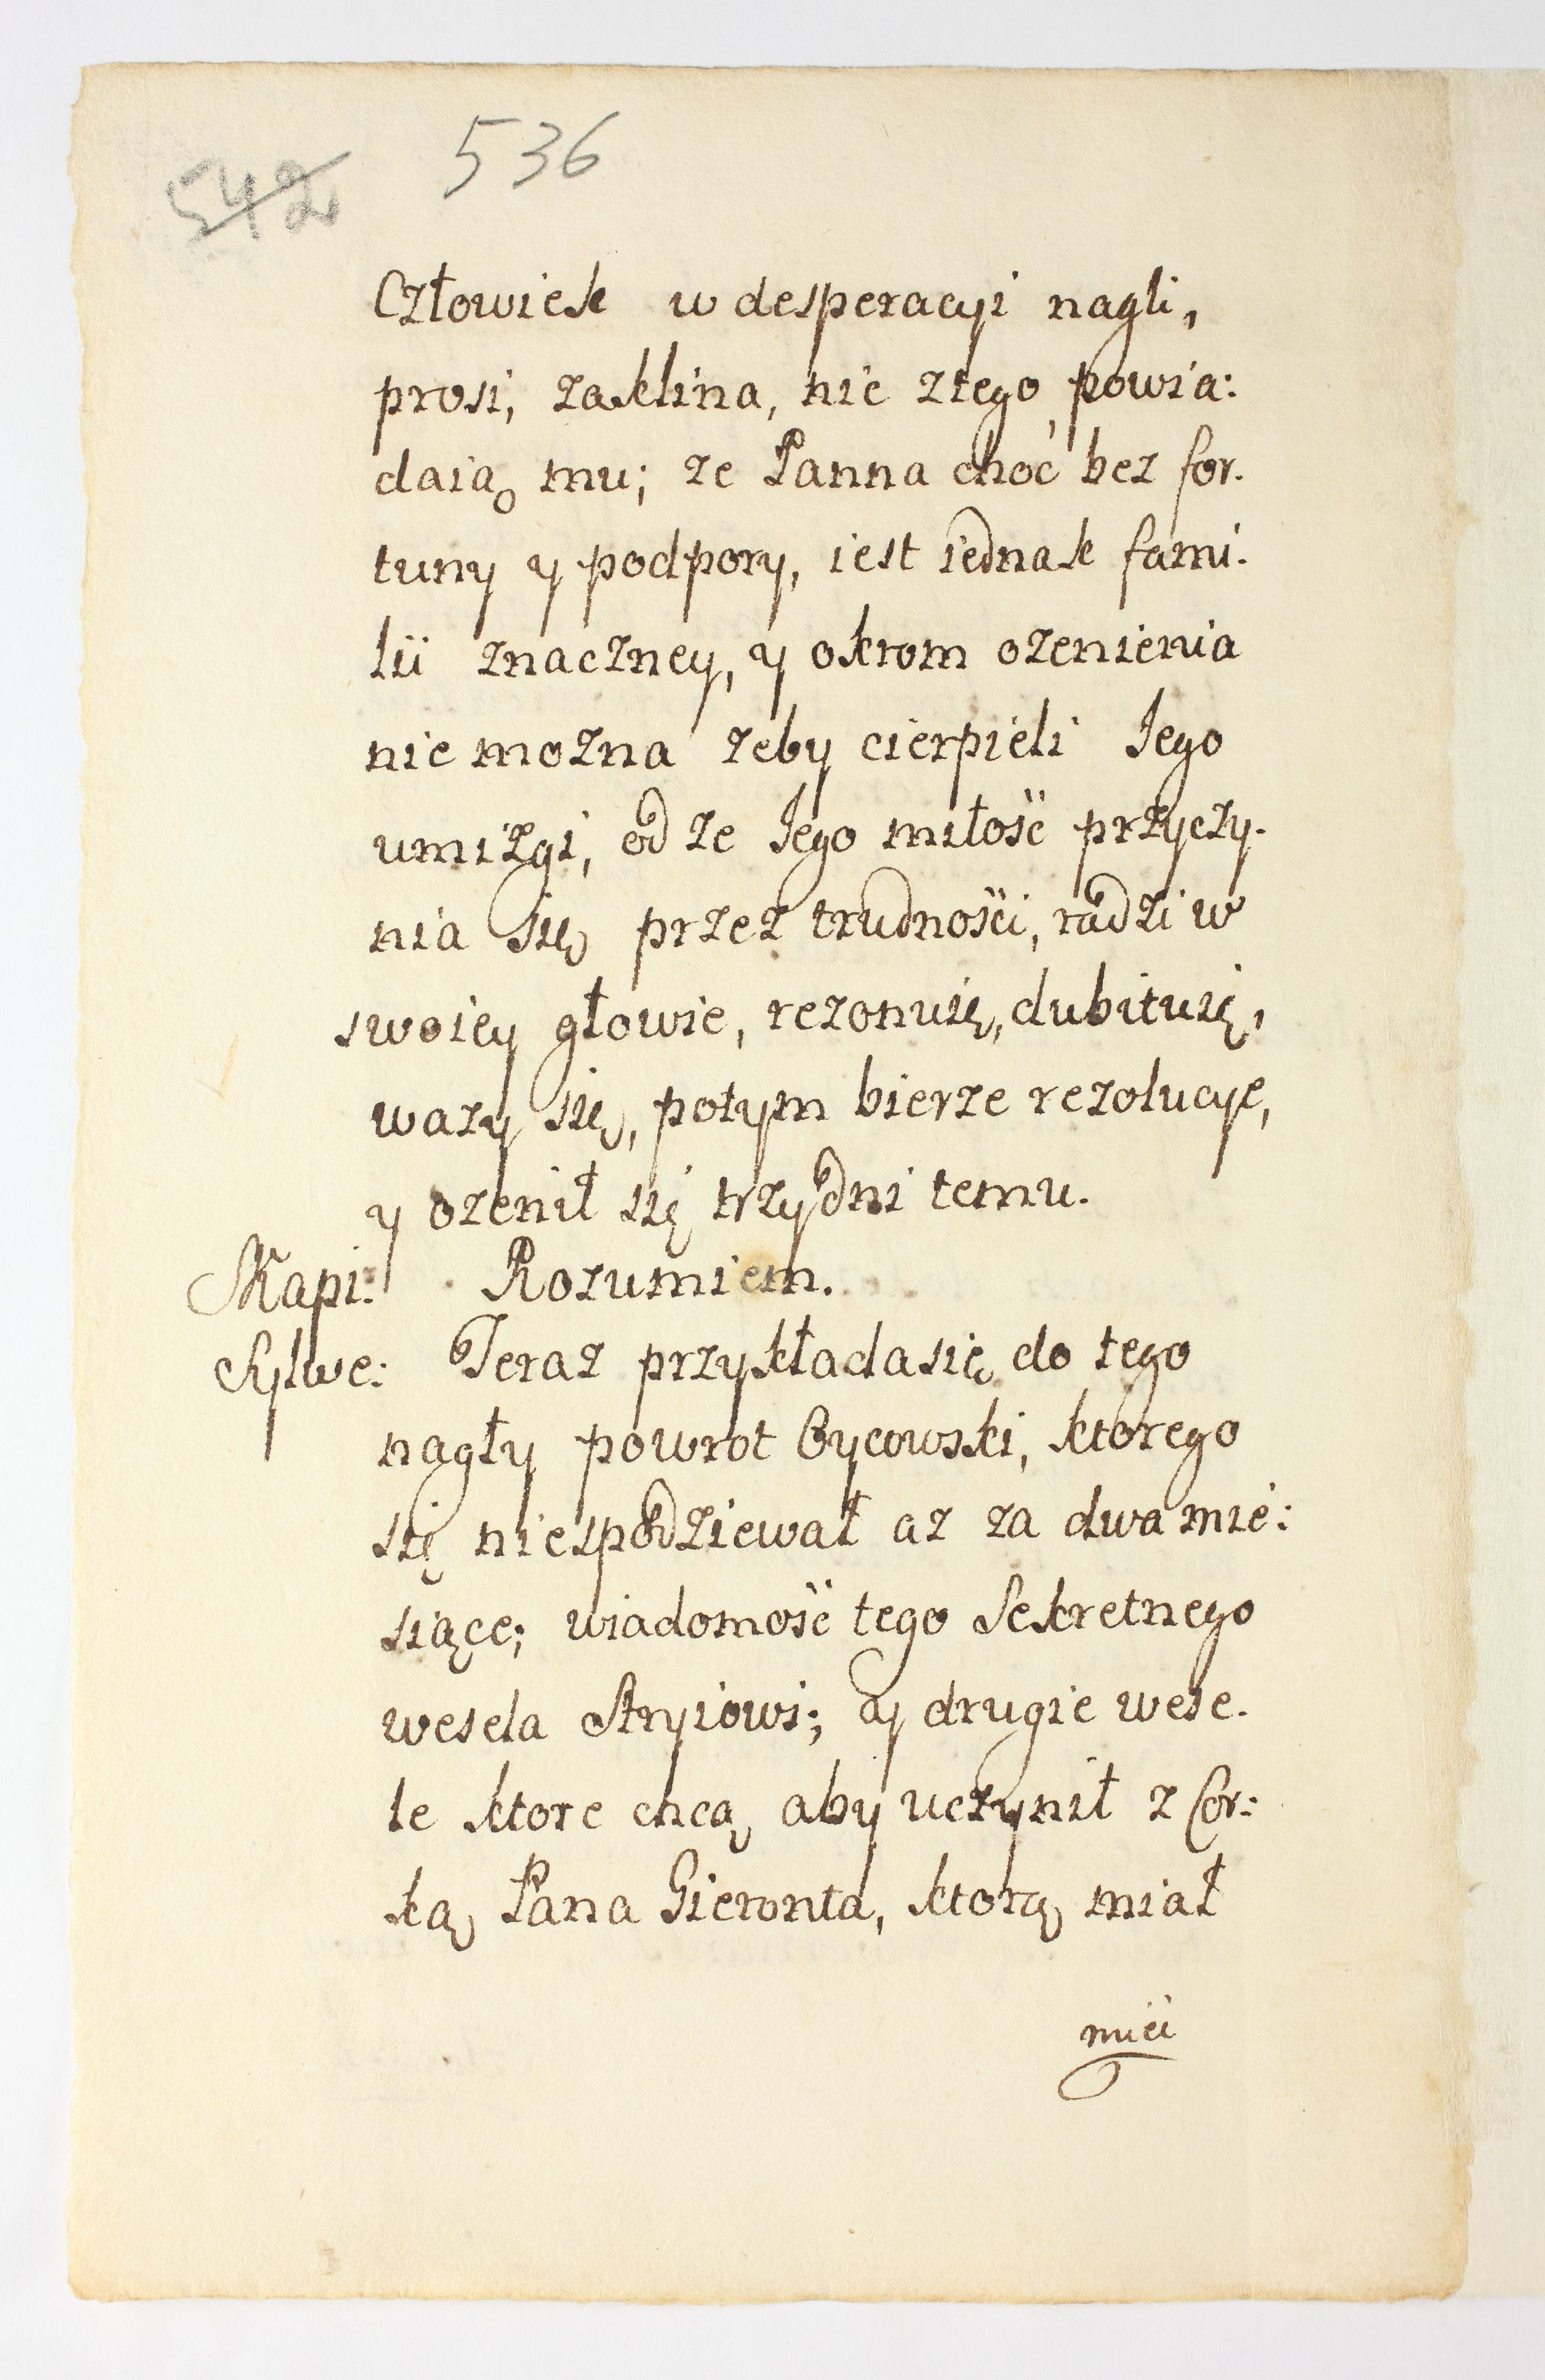 536
542
Człowiek w desperacyi nagli,
prosi, zaklina, nic z tego powia:
daią mu; ze Panna choć bez for.
tuny y podpory, iest iednak fami.
lii znaczney, y okrom ozenienia
nie mozna zeby cierpieli Iego
umizgi, od ze Iego miłość przyczy.
nia się przez trudności, radzi w
swoiey głowie, rezonuię, dubituię,
wazy się, potym bierze rezolucyę,
y ozenił się trzy dni temu.
Skapi: Rozumiem.
Sylwe: Teraz przykłada się do tego
nagły powrot Oycowski, ktorego
się niespodziewał az za dwa mie:
siące; wiadomość tego Sekretnego
wesela Stryiowi; y drugie wese.
le ktore chcą aby uczynił z Cor:
ką Pana Gieronta, ktorą miał
mieć